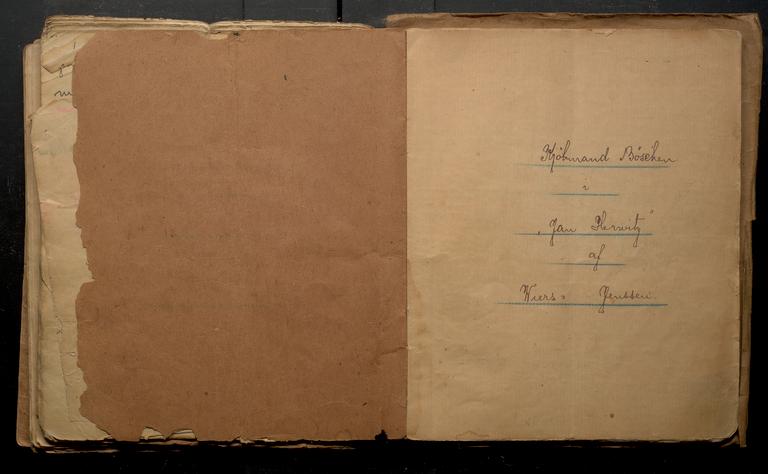 Kjöbmand Böschen
i
„Jan Herwitz"
af
Wiers- Jenssen.